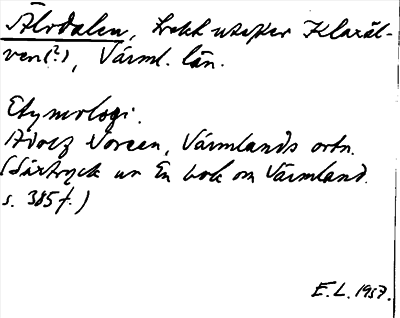 Älvdalen, trakt utefter Klaräl-
ven(?), Värml. län.
Etymologi.
Adolf Noreen, Värmlands ortn.
(Särtryck ur En bok om Värmland.
s. 385f.)
E.L. 1957.